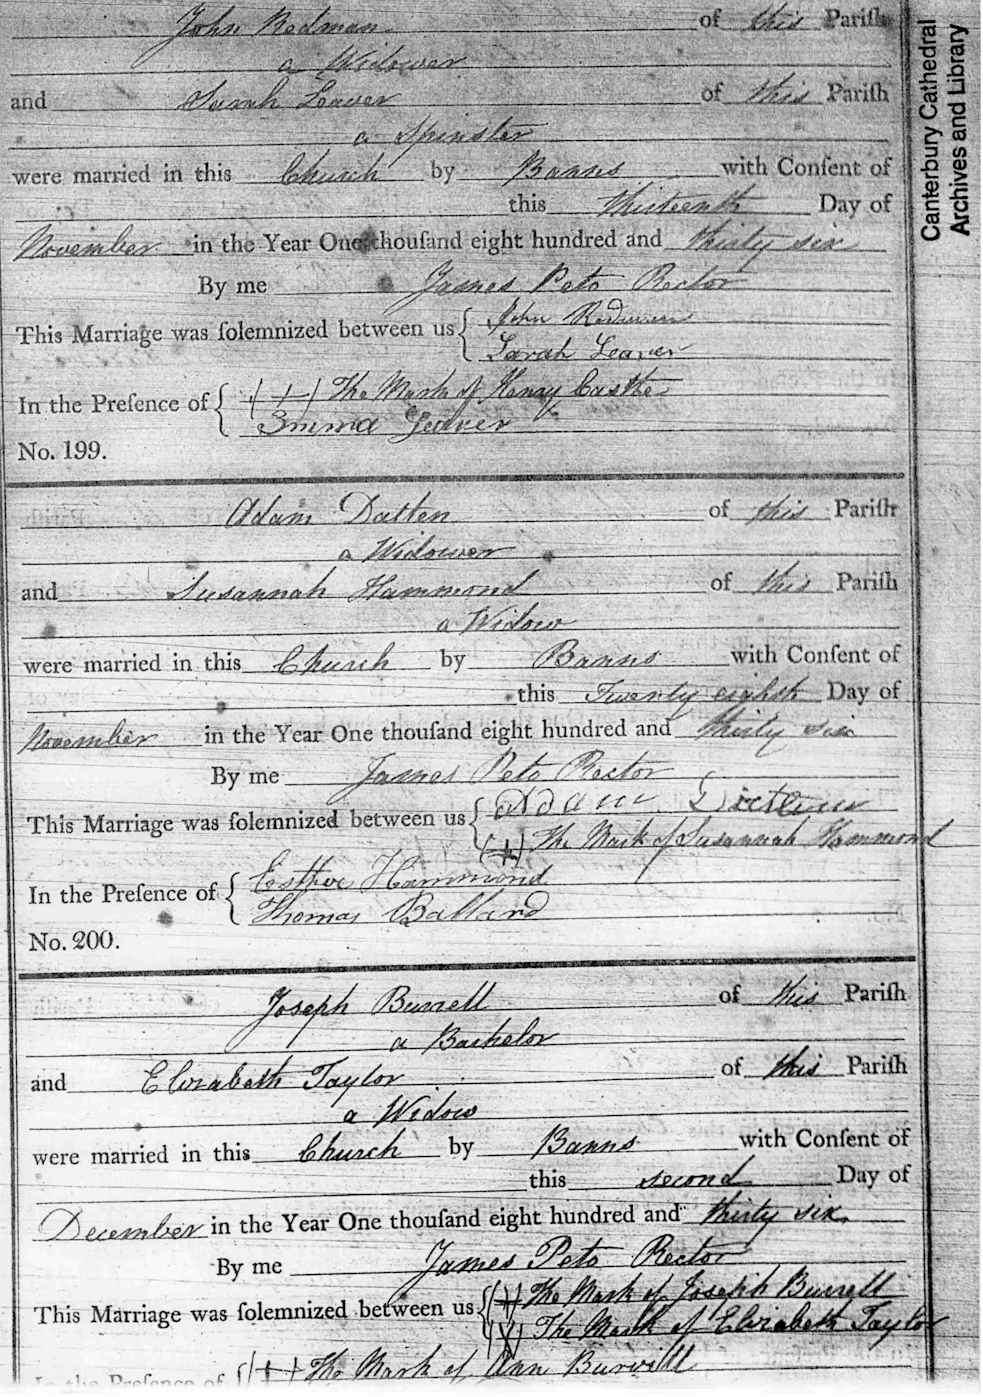 John Redman of this Parish
a Widower
and Sarah Leaver of this Parish
a Spinster
were married in this Church by Banns with Consent of
this thirteenth Day of
November in the Year One thousand eight hundred and thirty six
By me James Peto Rector
This Marriage was solemnized between us { John Redman
Sarah Leaver
In the Presence of { (+) The Mark of Henry Castle
Emma Leaver
No. 199.
Adam Datten of this Parish
a Widower
and Susannah Hammond of this Parish
a Widow
were married in this Church by Banns with Consent of
this Twenty eighth Day of
November in the Year One thousand eight hundred and thirty six
By me James Peto Rector
This Marriage was solemnized between us { Adam
(+) The Mark of Susannah Hammond
In the Presence of { Esther Hammond
Thomas Ballard
No. 200.
Joseph Burrell of this Parish
a Bachelor
and Elizabeth Taylor of this Parish
a Widow
were married in this Church by Banns with Consent of
this second Day of
December in the Year One thousand eight hundred and thirty six
By me James Peto Rector
This Marriage was solemnized between us { (+) The Mark of Joseph Burrell
(X) The Mark of Elizabeth Taylor
In the Presence of { (+) The Mark of Ann Burvill
Canterbury Cathedral
Archives and Library